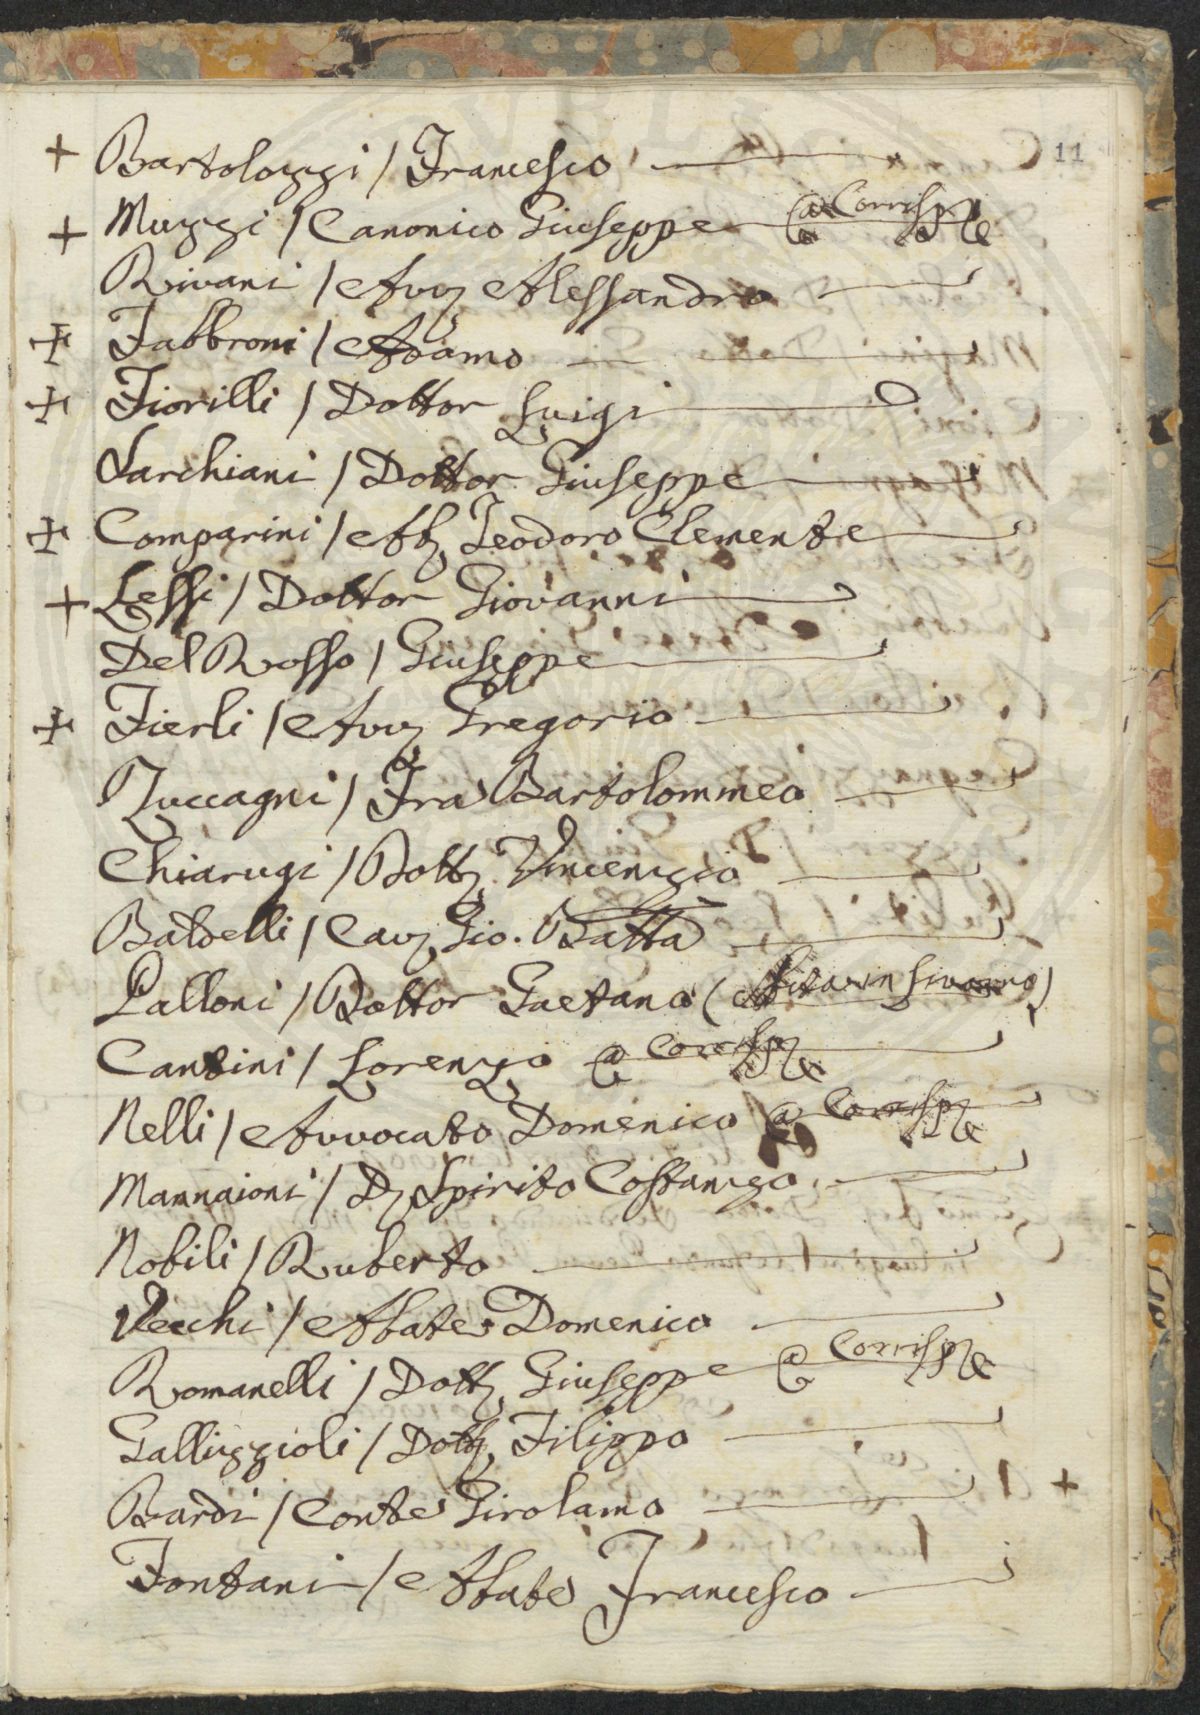 11
+ Bartolozzi / Francesco
+ Muzzi / Canonico Giuseppe @ Corrisp.e
Rivani / Avv. Alessandro
+ Fabbroni / Adamo
+ Fiorilli / Dottor Luigi
Sarchiani / Dottor Giuseppe
+ Comparini / Ab. Teodoro Clemente
+ Lessi / Dottor Giovanni
Del Rosso / Giuseppe
+ Fierli / Avv. Gregorio
Zuccagni / Fra Bartolommeo
Chiarugi / Dott. Vincenzio
Baldelli / Cav. Gio. Batta
Palloni / Dottor Gaetano (
Cantini / Lorenzo @ Corrisp.e
Nelli / Avvocato Domenico @ Corrisp.e
Mannaioni / D. Spirito Costanzo
Nobili / Ruberto
Vecchi / Abate Domenico
Romanelli / Dott. Giuseppe @ Corrisp.e
Gallizzioli / Dott. Filippo
Bardi / Conte Girolamo
Fontani / Abate Francesco